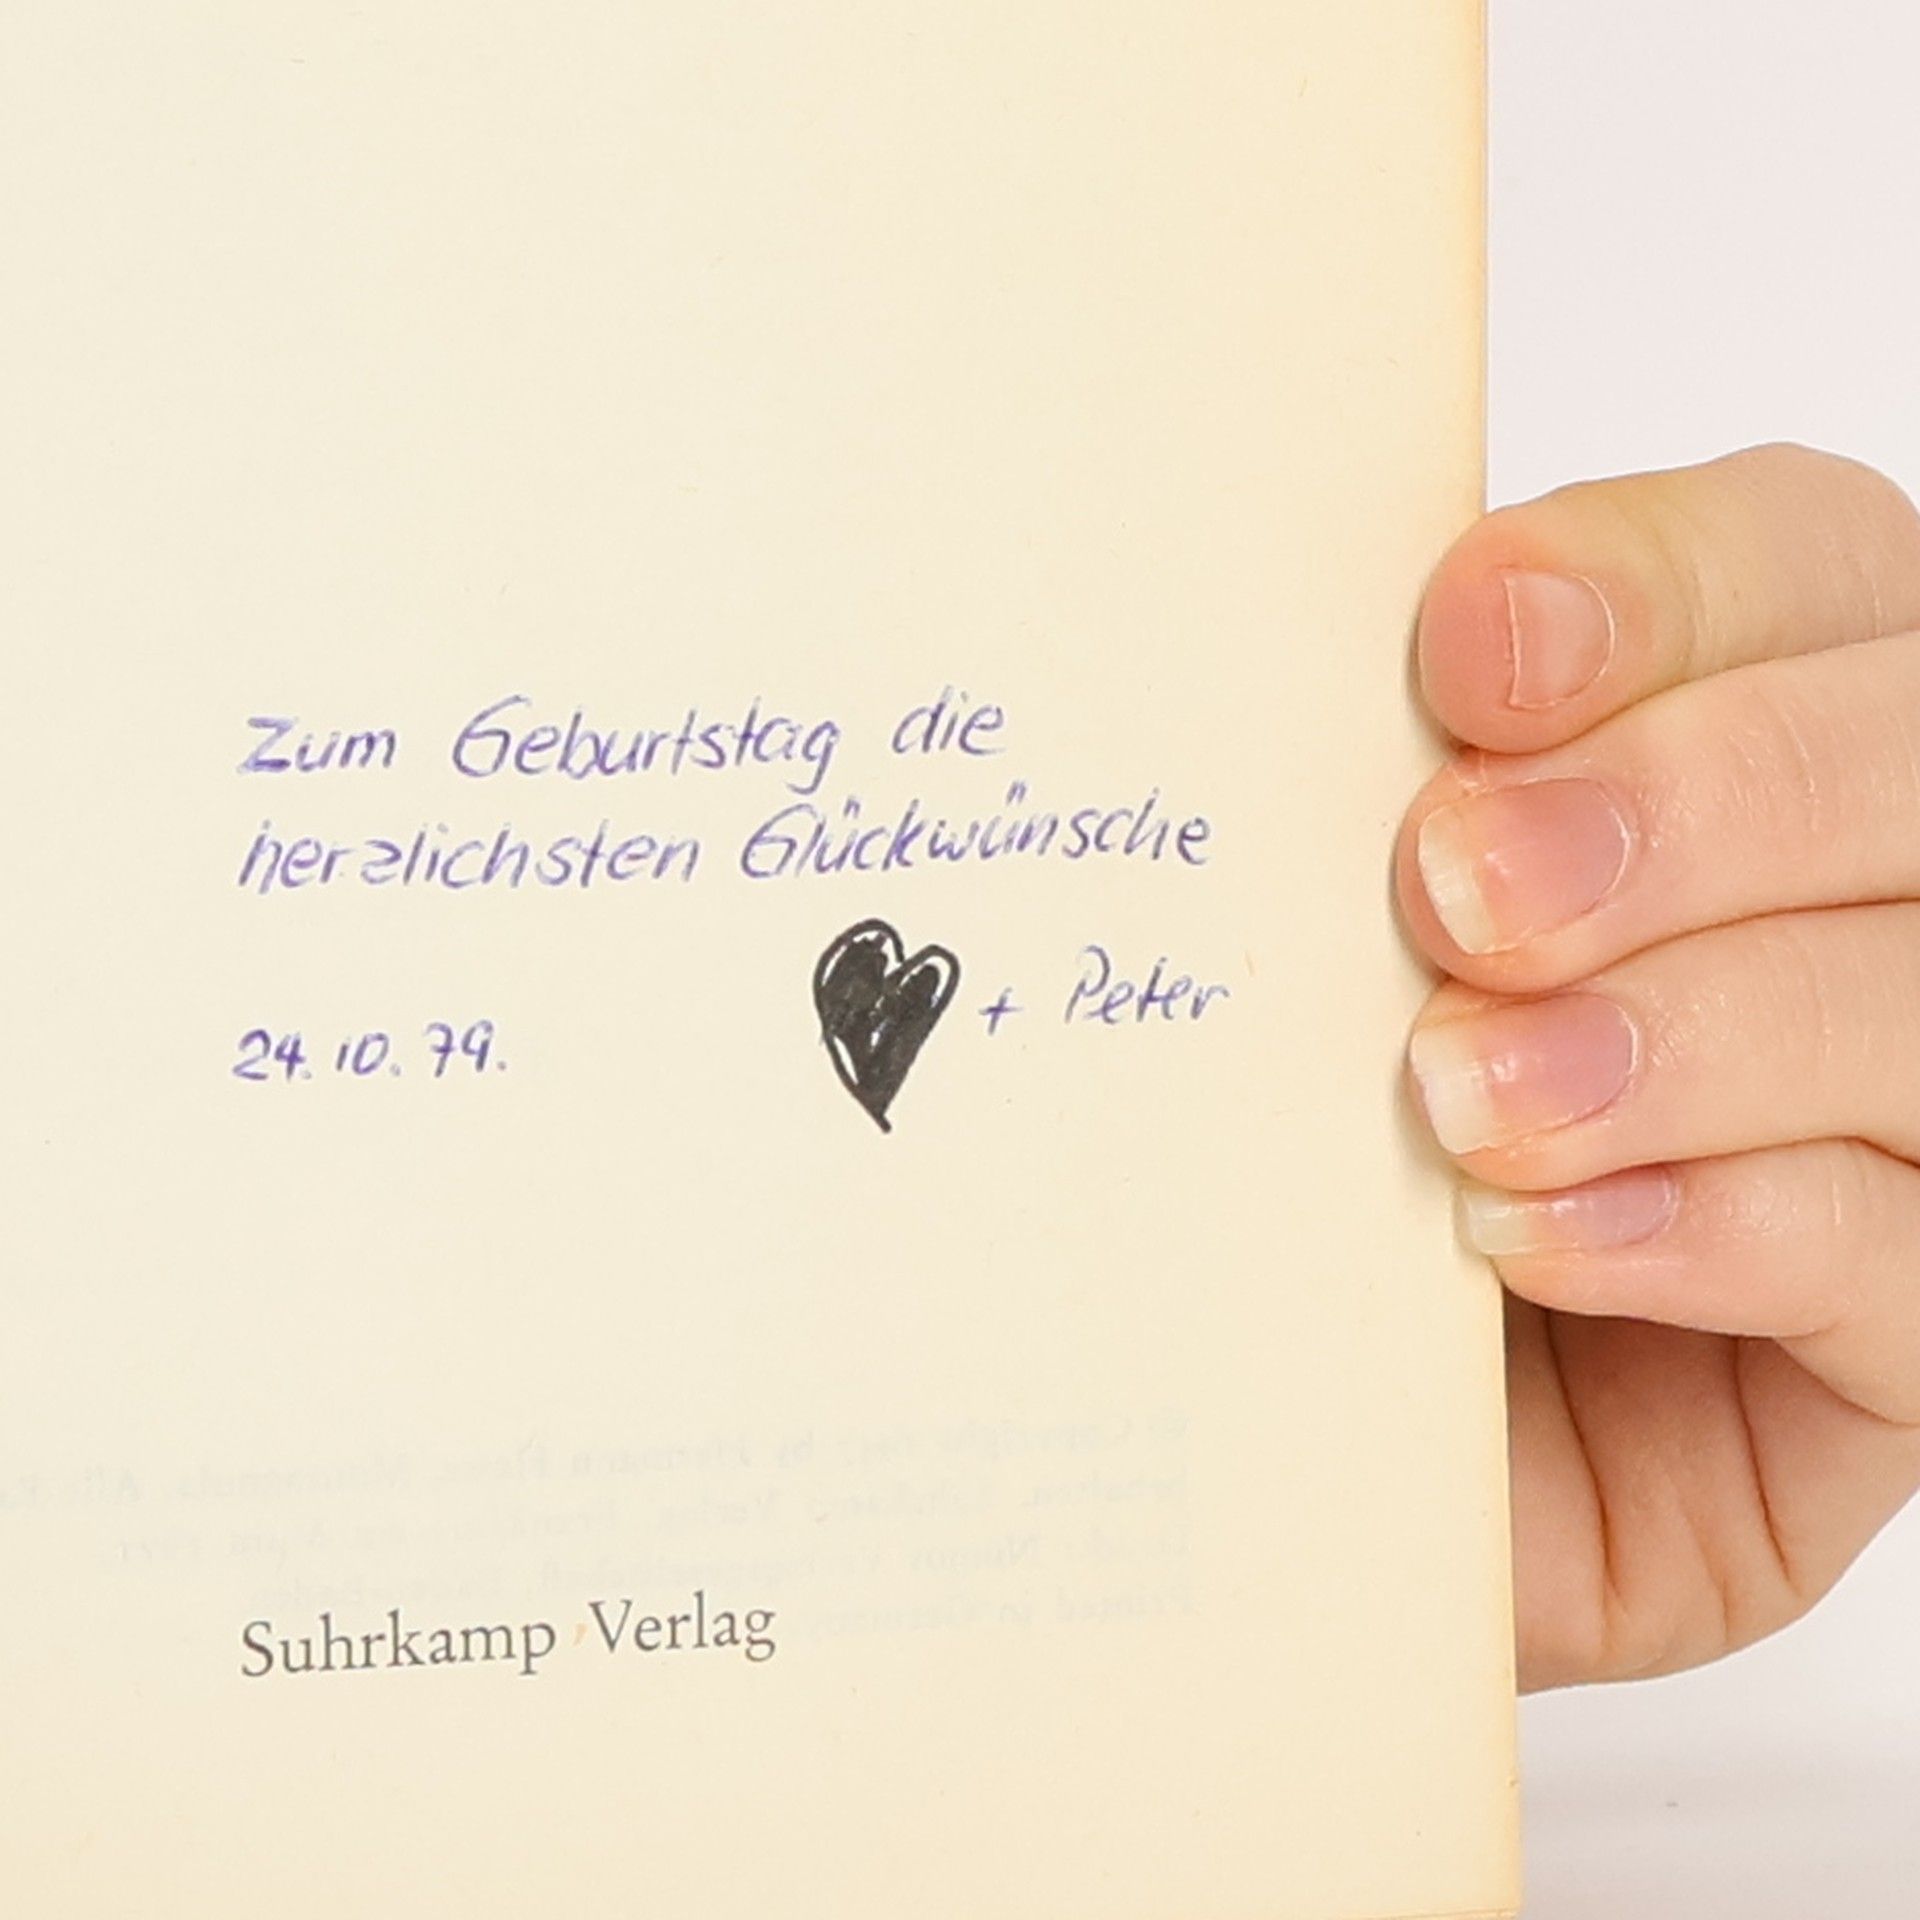 Zum Geburtstag die
herzlichsten Glückwünsche
+ Peter
24.10.79.
Suhrkamp Verlag